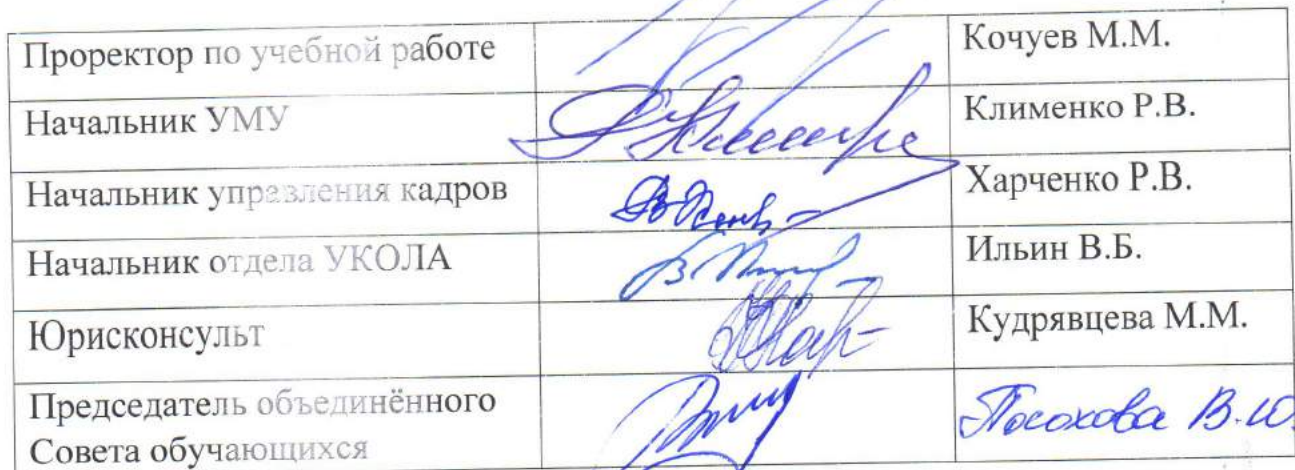 Проректор по учебной работе
Кочуев М.М.
Начальник УМУ
Клименко Р.В.
Начальник управления кадров
Харченко Р.В.
Начальник отдела УКОЛА
Ильин В.Б.
Юрисконсульт
Кудрявцева М.М.
Председатель объединённого
Совета обучающихся
Посохова В.Ю.